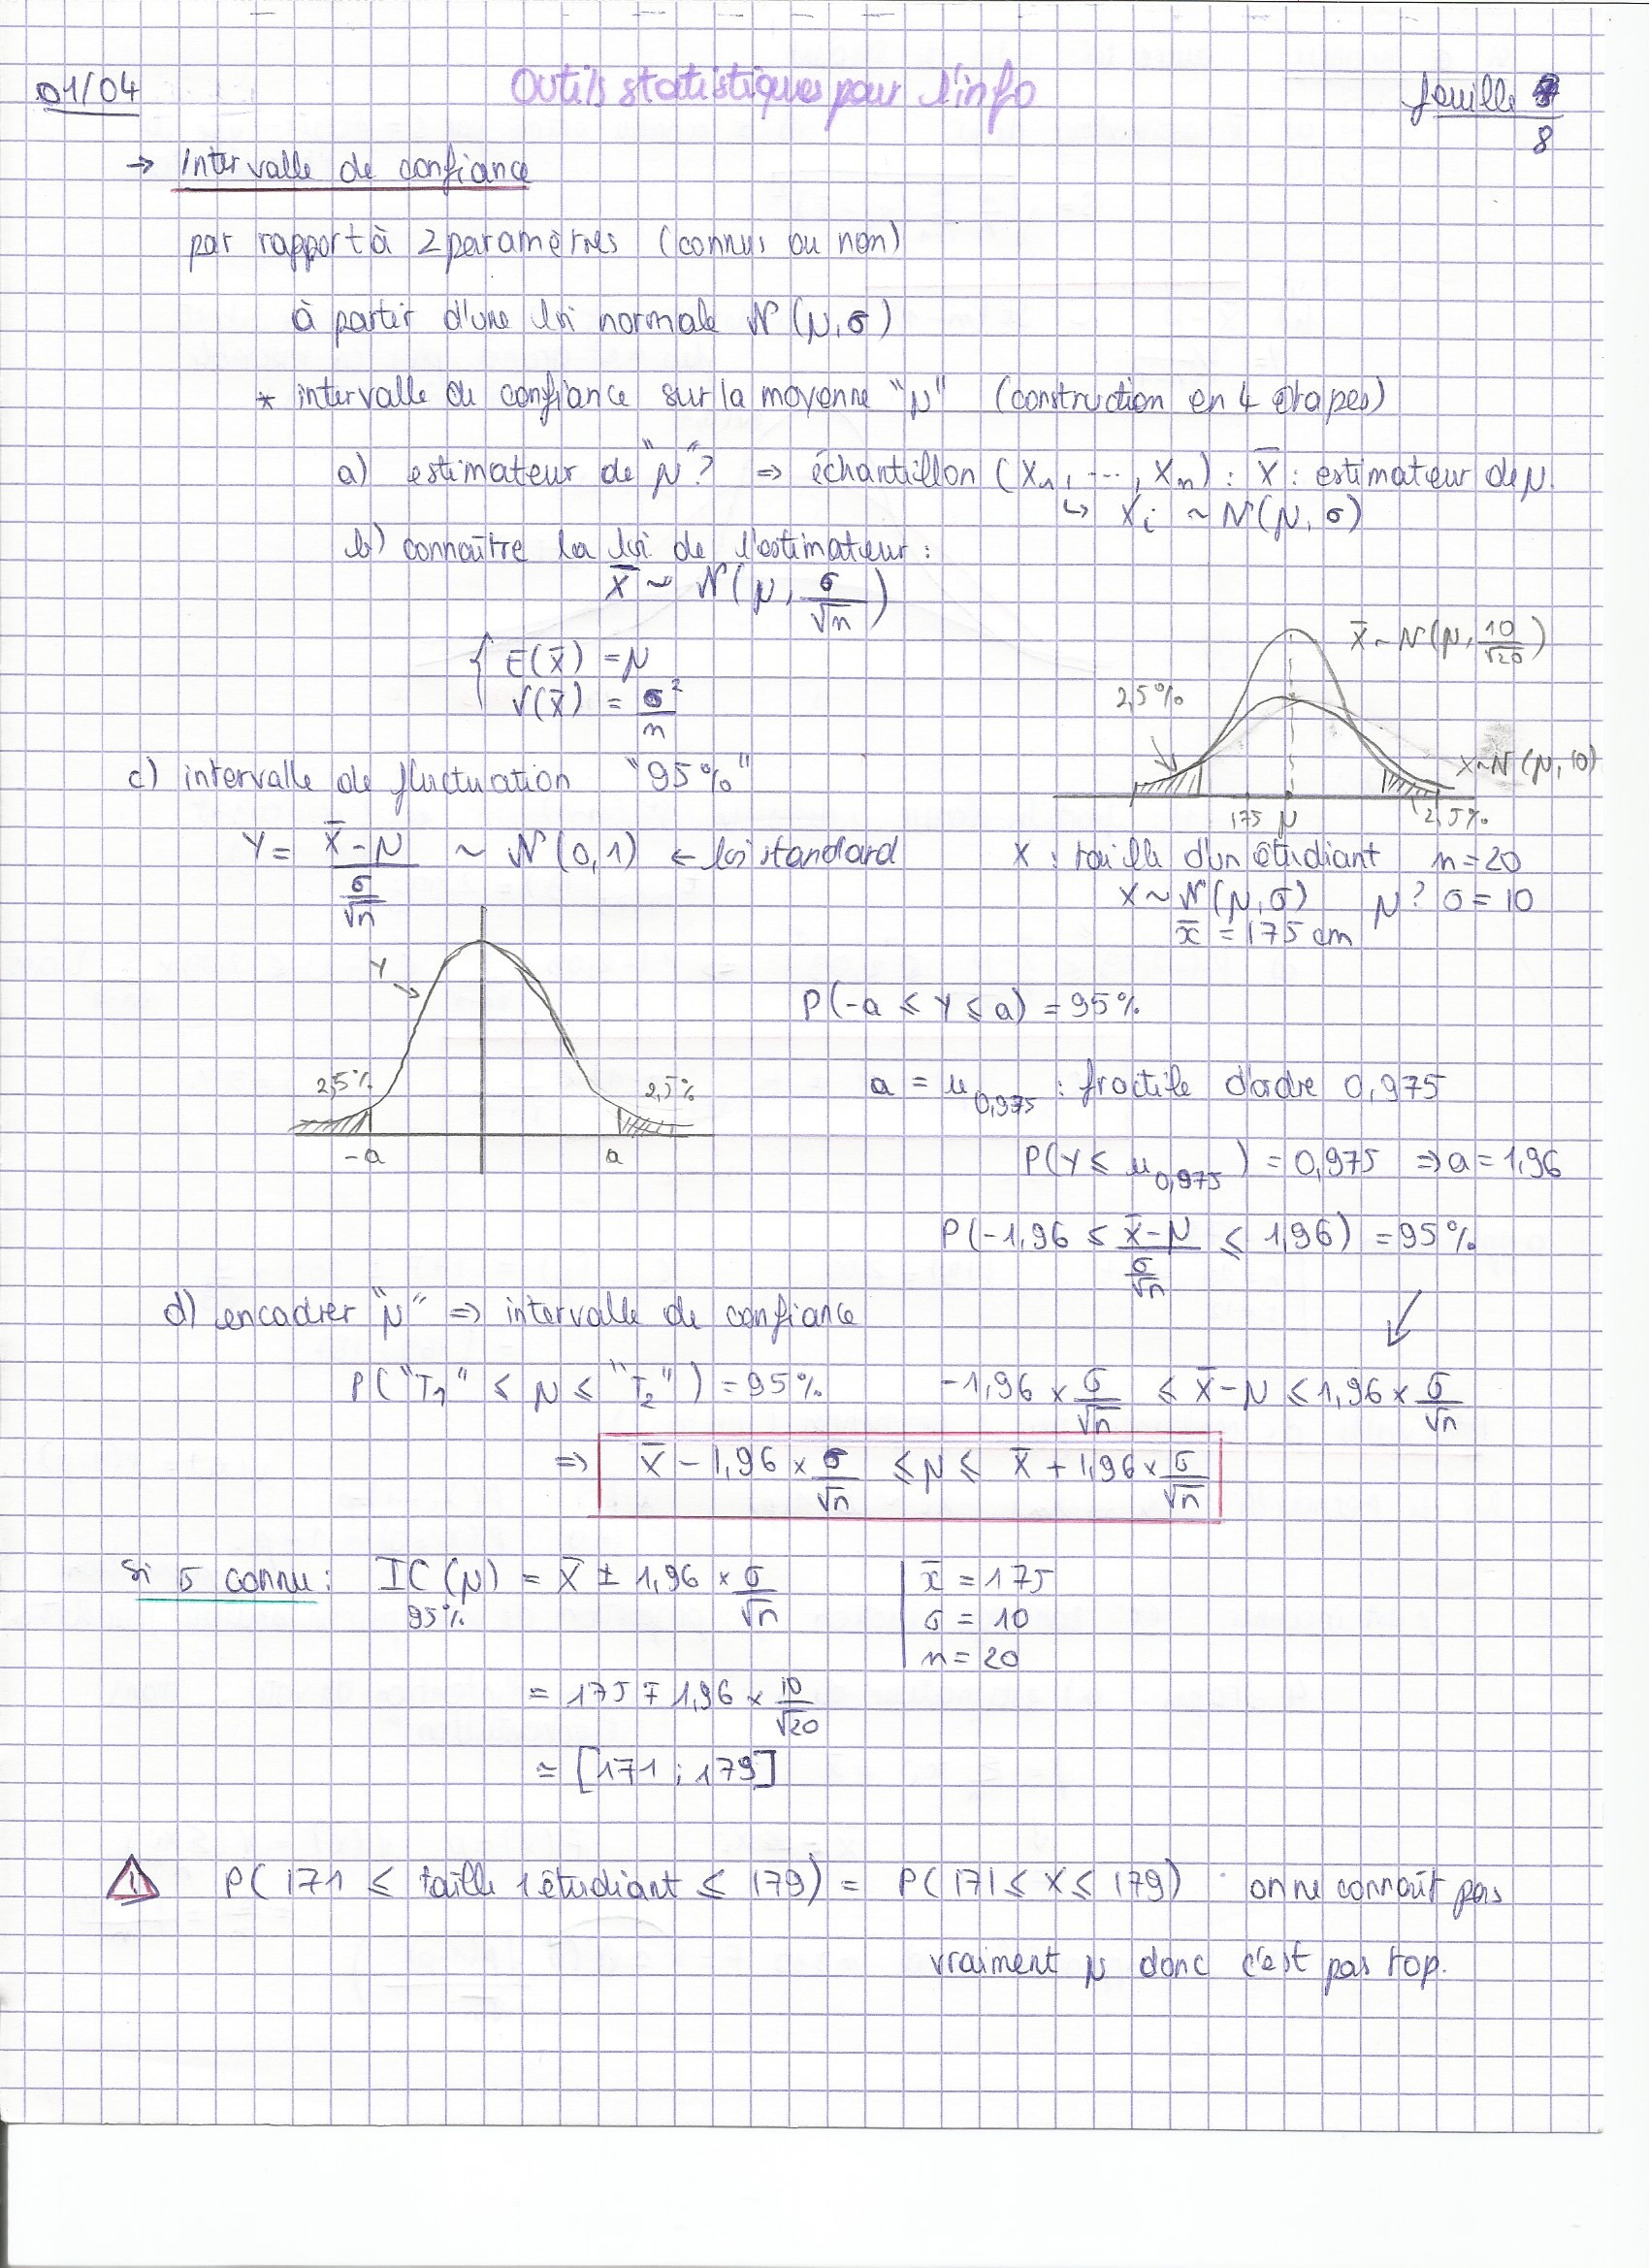 01/04
Outils statistiques pour l'info
feuille
8
→ Intervalle de confiance
par rapport à 2 paramètres (connus ou non)
à partir d'une loi normale N(μ, σ)
* intervalle de confiance sur la moyenne "μ" (construction en 4 étapes)
a) estimateur de "μ"? ⇒ échantillon (X₁, ..., Xₙ) : X̄ : estimateur de μ.
↳ Xᵢ ~ N(μ, σ)
b) connaître la loi de l'estimateur :
X̄ ~ N(μ, σ/√n)
{ E(X̄) = μ
V(X̄) = σ²/n
X̄ ~ N(μ, 10/√20)
2,5%
X ~ N(μ, 10)
175 μ 2,5%
c) intervalle de fluctuation "95%"
Y = (X̄ - μ)/(σ/√n) ~ N(0,1) ← loi standard
X : taille d'un étudiant n = 20
X ~ N(μ, σ) μ? σ = 10
x̄ = 175 cm
Y
2,5% 2,5%
-a a
P(-a ≤ Y ≤ a) = 95%
a = u₀,₉₇₅ : fractile d'ordre 0,975
P(Y ≤ u₀,₉₇₅) = 0,975 ⇒ a = 1,96
P(-1,96 ≤ (X̄ - μ)/(σ/√n) ≤ 1,96) = 95%
d) encadrer "μ" ⇒ intervalle de confiance
P("T₁" ≤ μ ≤ "T₂") = 95% -1,96 × σ/√n ≤ X̄ - μ ≤ 1,96 × σ/√n
⇒ X̄ - 1,96 × σ/√n ≤ μ ≤ X̄ + 1,96 × σ/√n
Si σ connu : IC(μ) = X̄ ± 1,96 × σ/√n
95%
x̄ = 175
σ = 10
n = 20
= 175 ∓ 1,96 × 10/√20
≃ [171 ; 179]
! P(171 ≤ taille 1 étudiant ≤ 179) = P(171 ≤ X ≤ 179) on ne connaît pas
vraiment μ donc c'est pas top.